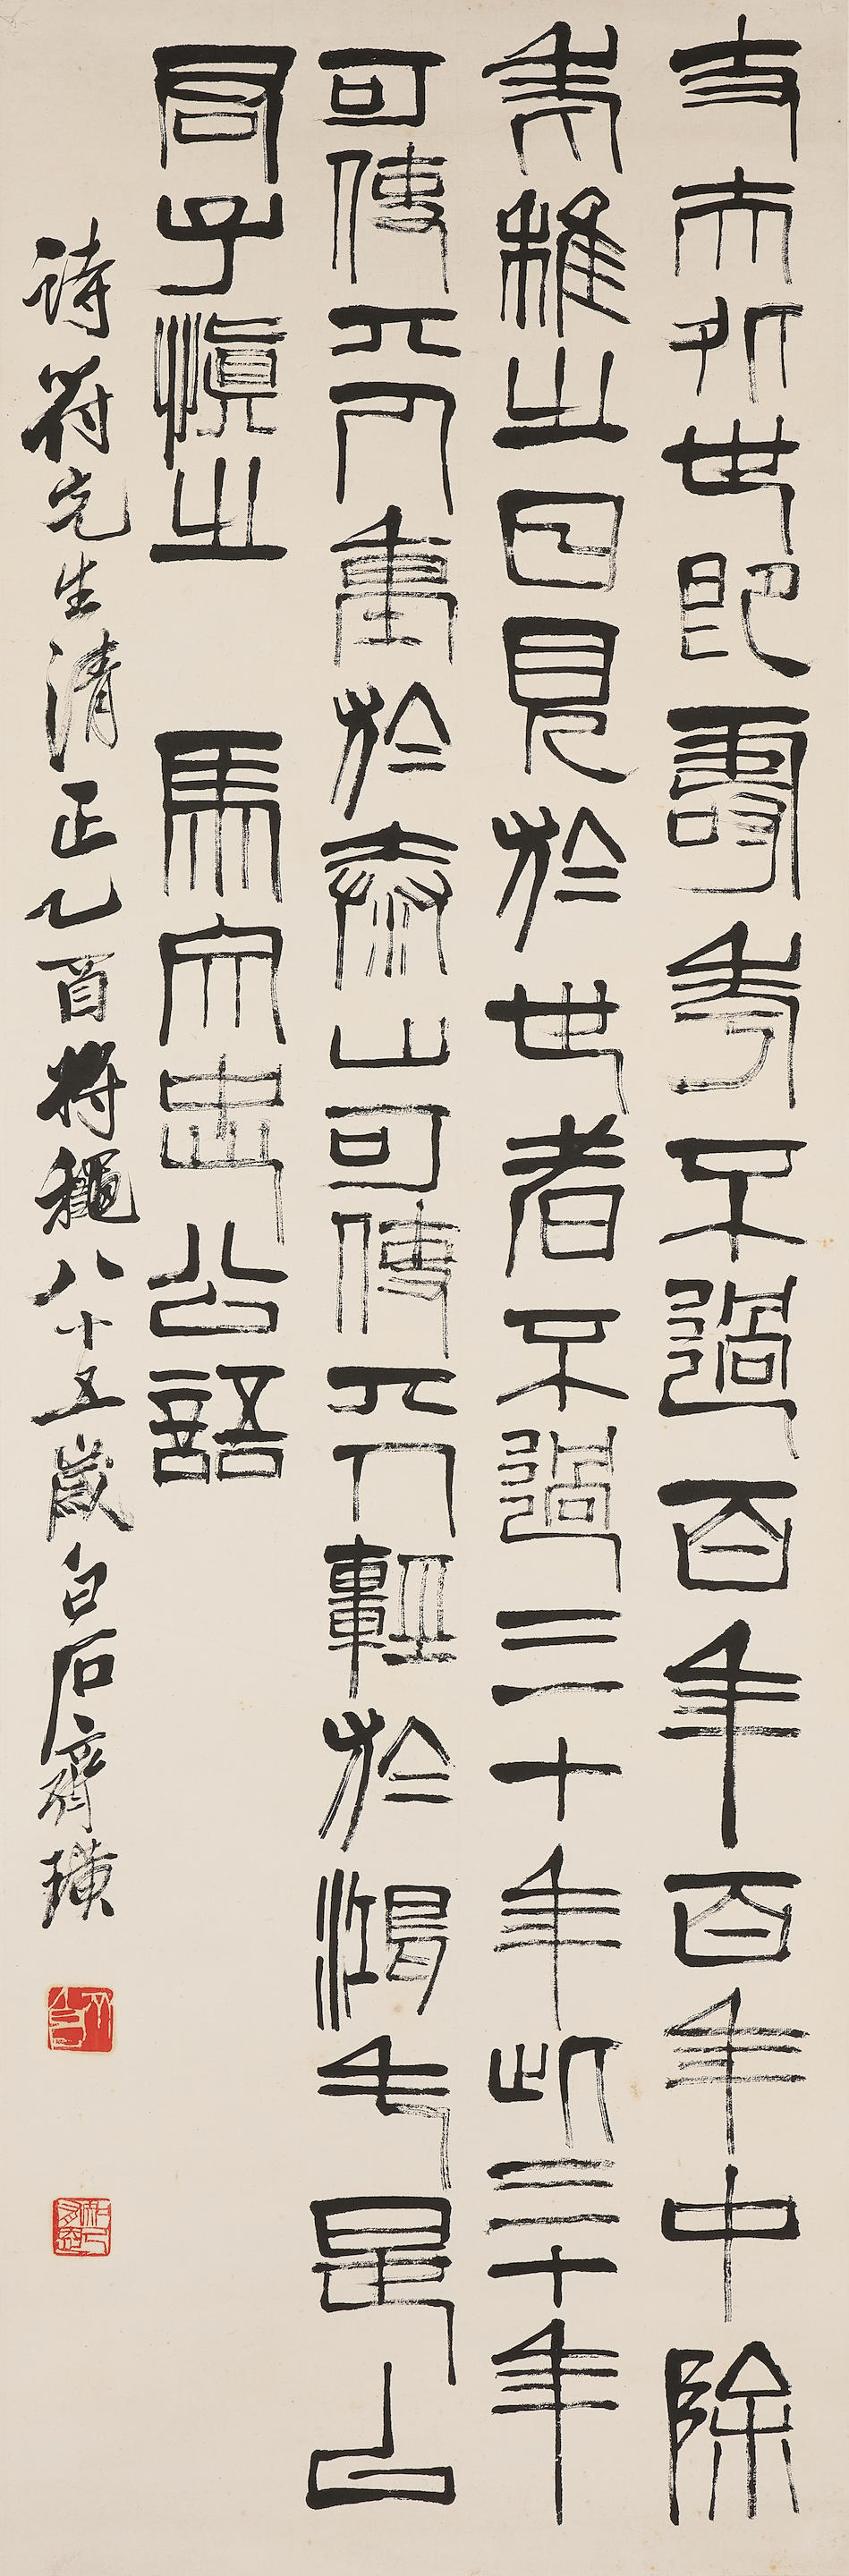 丈夫処世即壽考不過百年百年中除
老稚之日見於世者不過三十年此三十年
可使其人重於泰山可使其人輕於鴻毛是以
君子慎之 馬文忠公語
詩符先生清正乙酉將穐八十五歲白石齊璜